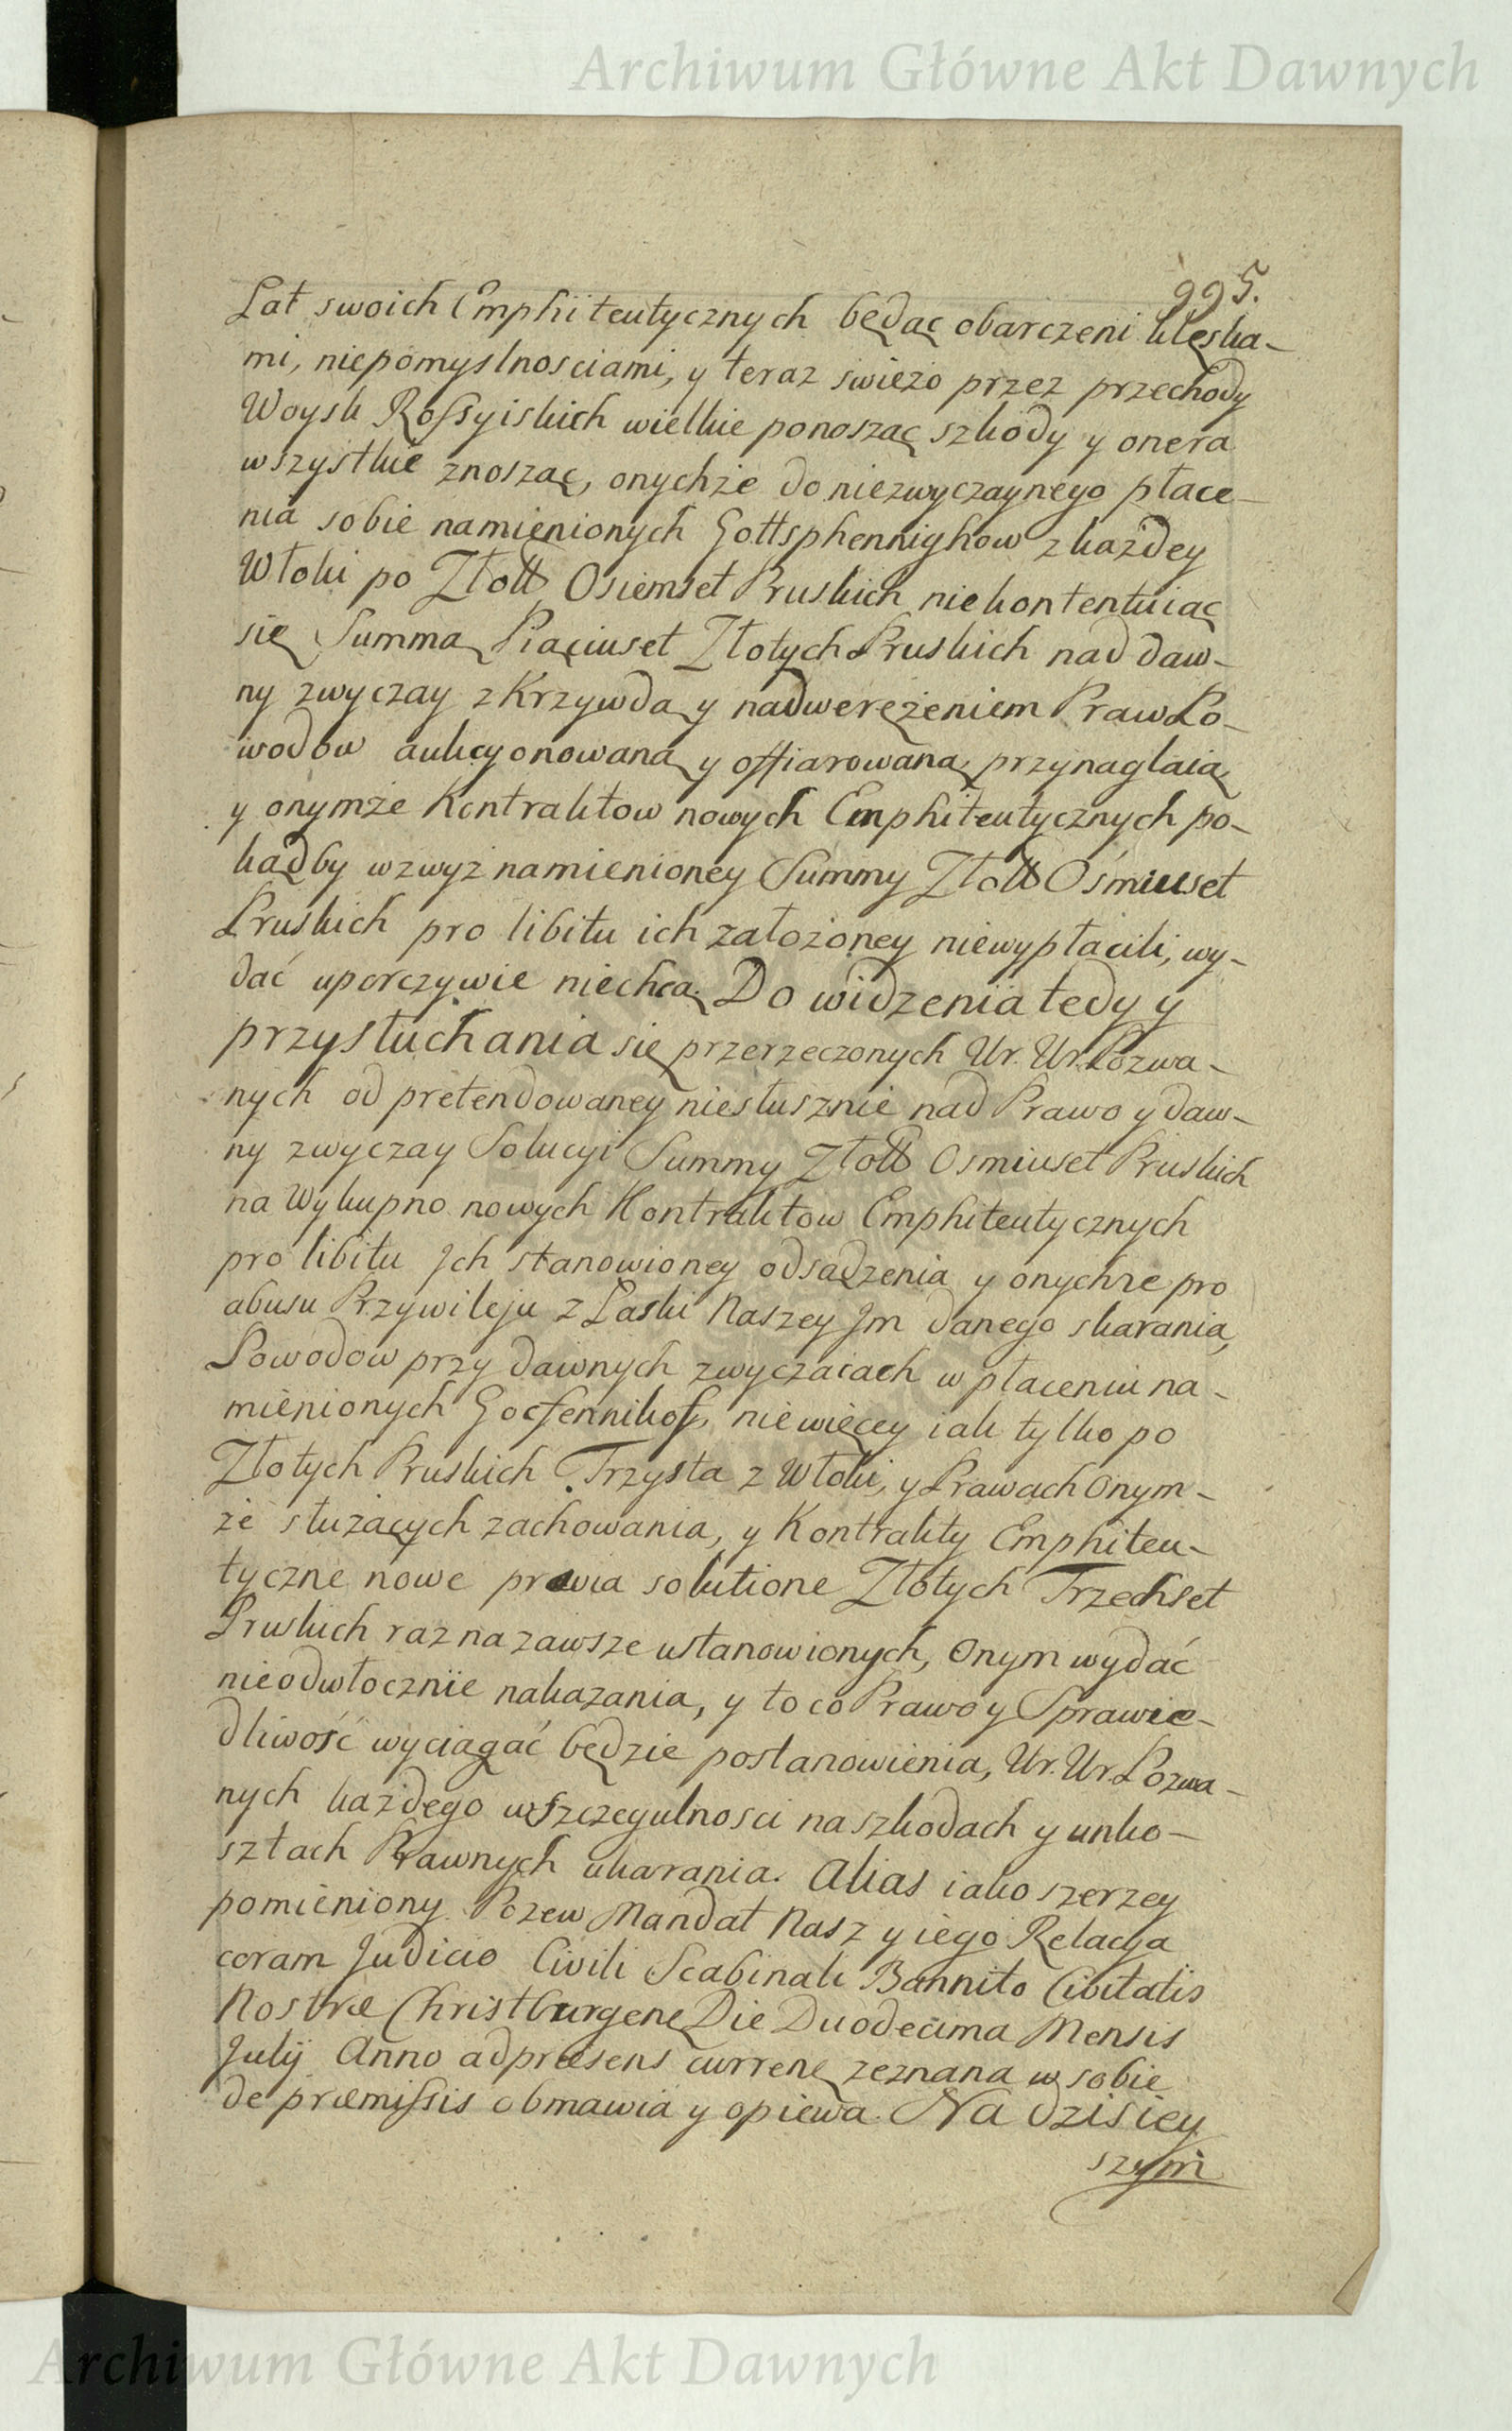 Archiwum Główne Akt Dawnych
995.
Lat swoich Emphiteutycznych będąc obarczeni klęska-
mi, niepomyslnosciami, y teraz swieżo przez przechody
Woysk Rossyiskich wielkie ponosząc szkody y onera
wszystkie znosząc, onychże do niezwyczaynego płace-
nia sobie namienionych Gottsphennighow z każdey
Włoki po Złott Osiemset Pruskich niekontentuiąc
się Summą Pięciuset Złotych Pruskich nad daw-
ny zwyczay z Krzywdą y nadwerężeniem Praw Po-
wodow aukcyonowaną y offiarowaną przynaglaią
y onymże Kontraktow nowych Emphiteutycznych po-
kądby wzwyż namienioney Summy Złott Ośmiuset
Pruskich pro libitu ich założoney niewypłacili, wy-
dać uporczywie niechcą. Do widzenia tedy y
przysłuchania się przerzeczonych Ur. Ur. Pozwa-
nych od pretendowaney niesłusznie nad Prawo y daw-
ny zwyczay Solucyi Summy Złott Osmiuset Pruskich
na Wykupno nowych Kontraktow Emphiteutycznych
pro libitu Jch stanowioney odsądzenia y onychże pro
abusu Przywileju z Laski Naszey Jm danego skarania,
Powodow przy dawnych zwyczaiach w płaceniu na-
mienionych Gocfennikof, niewięcey iak tylko po
Złotych Pruskich Trzysta z Włoki, y Prawach Onym-
że służących zachowania, y Kontrakty Emphiteu-
tyczne nowe prævia solutione Złotych Trzechset
Pruskich raz na zawsze ustanowionych, Onym wydać
nieodwłocznie nakazania, y to co Prawo y Sprawie-
dliwość wyciągać będzie postanowienia, Ur. Ur. Pozwa-
nych każdego wszczegulnosci na szkodach y unko-
sztach Prawnych ukarania. Alias iako szerzey
pomieniony Pozew Mandat Nasz y iego Relacya
coram Judicio Civili Scabinali Bannito Civitatis
Nostræ Christburgenę Die Duodecima Mensis
Julij Anno adpræsens currenę zeznana w sobie
de præmissis obmawia y opiewa. Na dzisiey
szym
Archiwum Główne Akt Dawnych